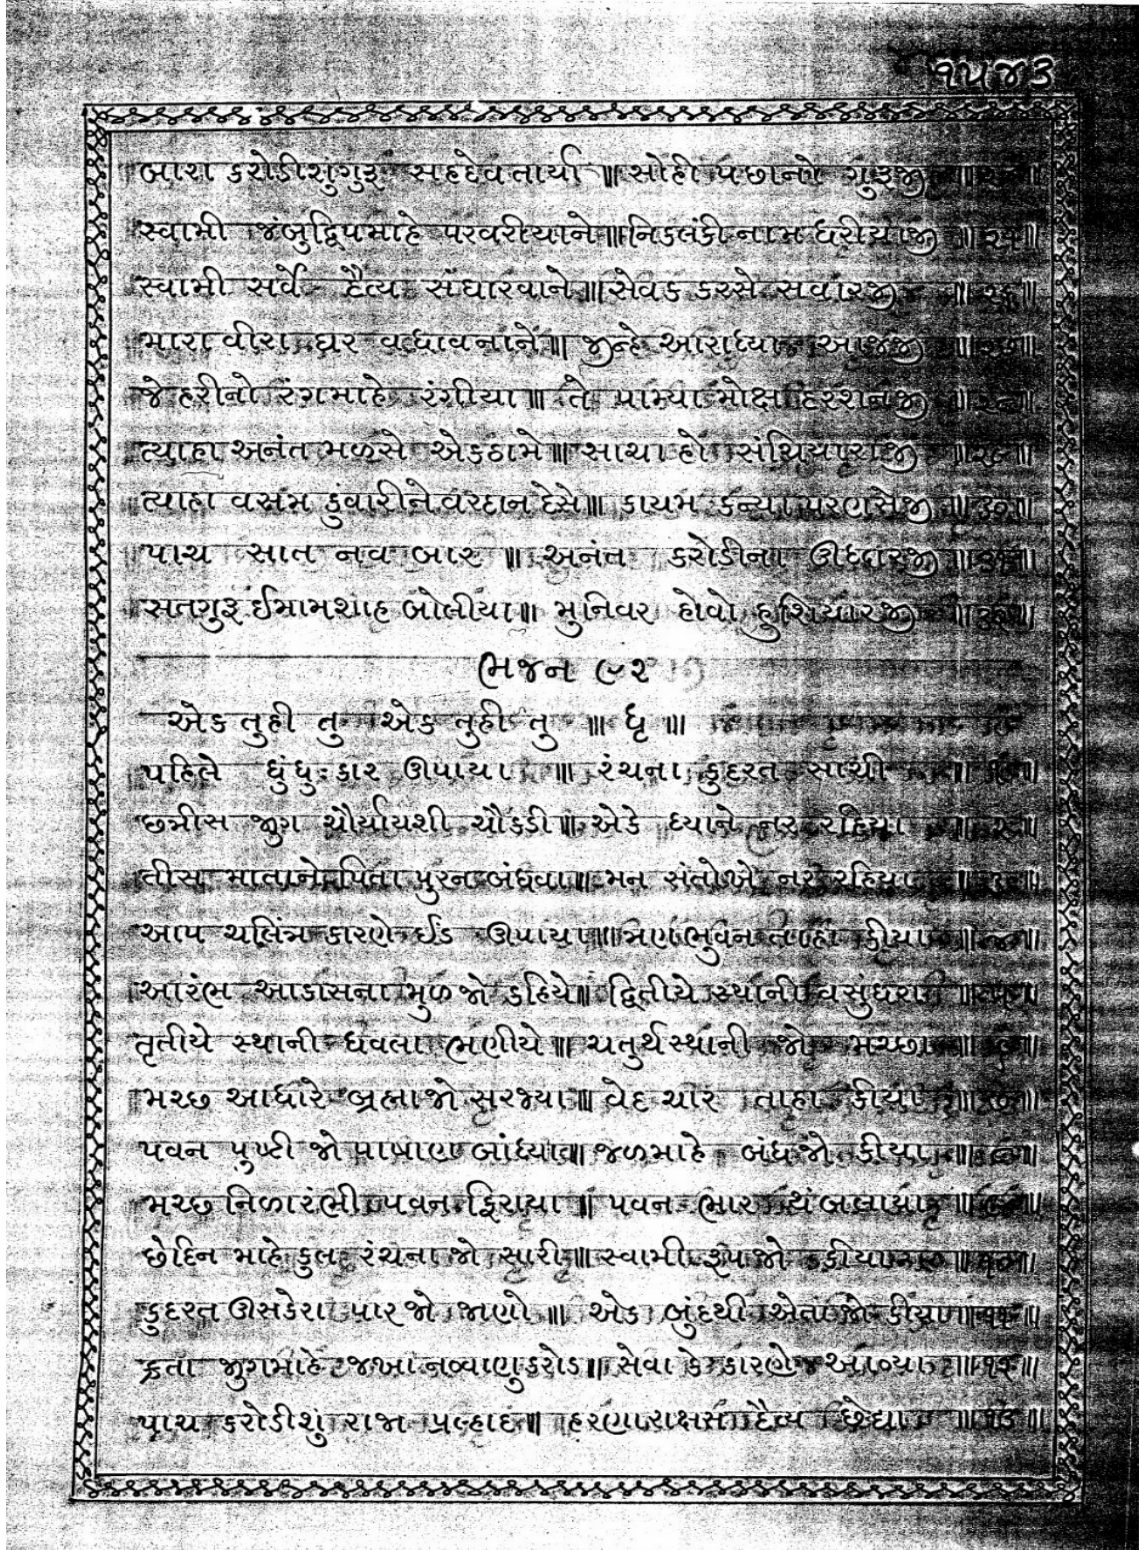 ૧૫૪૩
બારા કરોડીશું ગુરૂ સહદેવ તાર્યા ॥ સોહી પછાનો ગુરૂજી ॥
સ્વામી જંબુદ્વિપમાહે પરવરીયાને ॥ નિકલંકી નામ ધરીયાજી ॥૨૫॥
સ્વામી સર્વે દૈત્ય સંઘારવાને ॥ સેવક કરસે સવારજી ॥૨૬॥
મારા વીરા ઘર વધાવનાને ॥ જીન્હે આરાધ્યા આજજી ॥૨૭॥
જે હરીનો રંગમાહે રંગીયા ॥ તે પામ્યા મોક્ષ દરશનજી ॥૨૮॥
ત્યાહા અનંત મળસે એકઠામે ॥ સાચા હો ॥૨૯॥
ત્યાહા કુંવારીને વરદાન દેસે ॥ કાયમ કન્યા પરણસેજી ॥૩૦॥
પાચ સાત નવ બાર ॥ અનંત કરોડીના ઊધ્ધારજી ॥૩૧॥
સતગુરૂ ઈમામશાહ બોલીયા ॥ મુનિવર હોવો હુશિયારજી ॥૩૨॥
ભજન ૯૨
એક તુહી તુ એક તુહી તુ ॥ ધૃ ॥
પહિલે ધુંધુકાર ઊપાયા ॥ રંચના કુદરત સાચી ॥૧॥
છત્રીસ જુગ ચૌર્યાયશી ચૌકડી ॥ એકે ધ્યાને નર રહિયા ॥૨॥
તીસ માતાનો પિતા પુરન બંધવા ॥ મન સંતોએ નર રહિયા ॥૩॥
આપ ચલિત્ર કારણે ઈંડ ઊપાયા ॥ ત્રણ ભુવન તાહા કીયા ॥૪॥
આરંભ આકાસના મુળ જો કહિયે ॥ દ્વિતીયે સ્થાની વસુંધરા ॥૫॥
તૃતીયે સ્થાની ધવલા ભણીયે ॥ ચતુર્થ સ્થાની જો મચ્છા ॥૬॥
મચ્છ આધારે બ્રહ્મા જો સરજ્યા ॥ વેદ ચાર તાહા કીયા ॥૭॥
પવન પુષ્ટી જો પાષાણ બાંધ્યા ॥ જળમાહે બંધ જો કીયા ॥૮॥
મચ્છ નિળારંભી પવન ફિરાયા ॥ પવન ભાર ॥૯॥
છેદિન માહે કુલ રંચના જો સારી ॥ સ્વામી રૂપ જો ॥૧૦॥
કુદરત ઊસકેરા પાર જો જાણો ॥ એક બુંદથી એતા જો કીયા ॥૧૧॥
ક્રતા જુગમાહે જખા નવ્વાણુ કરોડ ॥ સેવા કે કારણે આવ્યા ॥૧૨॥
પાચ કરોડીશું રાજા પ્રલ્હાદ ॥ હરણારાક્ષસ દૈત્ય છેદ્યા ॥૧૩॥